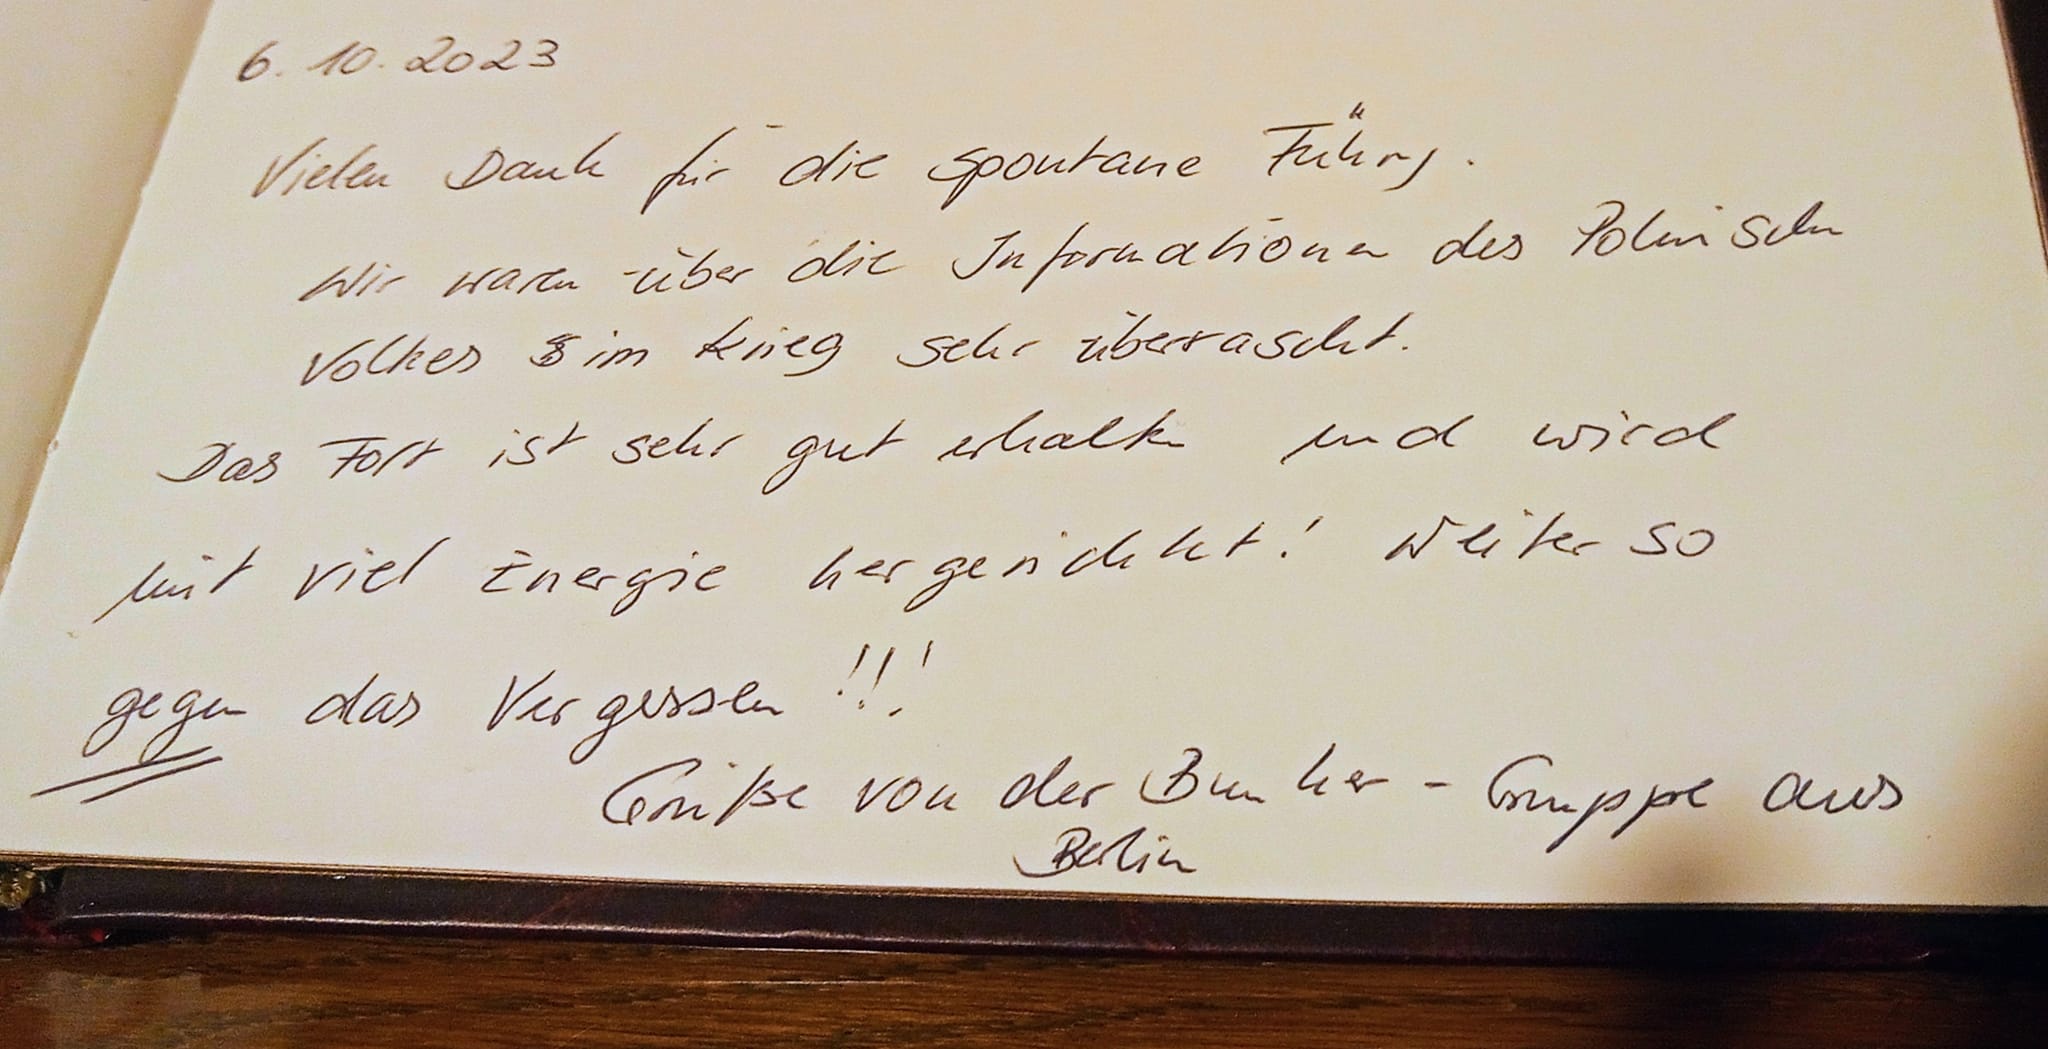 6. 10. 2023
Vielen Dank für die spontane Führung.
Wir waren über die Informationen des Polnischen
Volkes im Krieg sehr überrascht.
Das Fort ist sehr gut erhalten und wird
mit viel Energie hergerichtet! Weiter so
gegen das Vergessen !!!
Grüße von der Bunker - Gruppe aus
Berlin